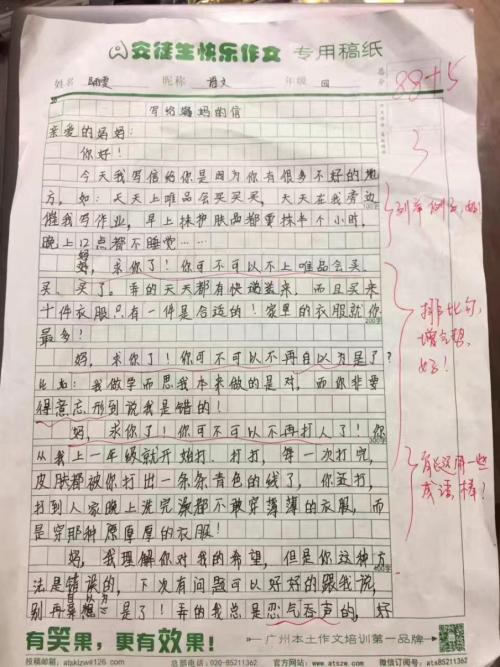 交徒生快乐作文 专用稿纸
姓名 昵称 文 年级 四
总分 88+5
写给妈妈的信
亲爱的妈妈:
你好!
今天我写信给你是因为你有很多不好的地
方,如:天天上唯品会买买买,天天在我旁边
催我写作业,早上抹护肤品都要抹半个小时,
晚上12点都不睡觉……
妈妈,求你了!你可不可以不上唯品会买、
买、买了。弄的天天都有快递签来,而且买来
十件衣服只有一件是合适的!家里的衣服就你
最多!
妈,求你了!你可不可以不再自以为是了?
比如:我做学而思我本来做的是对,而你非要
得意忘形到说我是错的!
妈,求你了!你可不可以不再打人了!你
从我上一年级就开始打、打打,每一次打完,
皮肤都被你打出一条条青色的线了,你再打,
打到人家晚上洗完澡都不敢穿薄薄的衣服,而
是穿那种厚厚厚的衣服!
妈,我理解你对我的希望,但是你这种方
法是错误的,下次有问题可以好好的跟我说,
别再自以为是了!弄的我总是忍气吞声的,好
列举例子,好!
排比句,
增气势,
好!
成语,棒!
100字
200字
300字
400字
有笑果,更有效果!
广州本土作文培训第一品牌
投稿邮箱:atsklzw@126.com 总部电话:020-85211362 官方网站:www.atszw.com 微信订阅号: